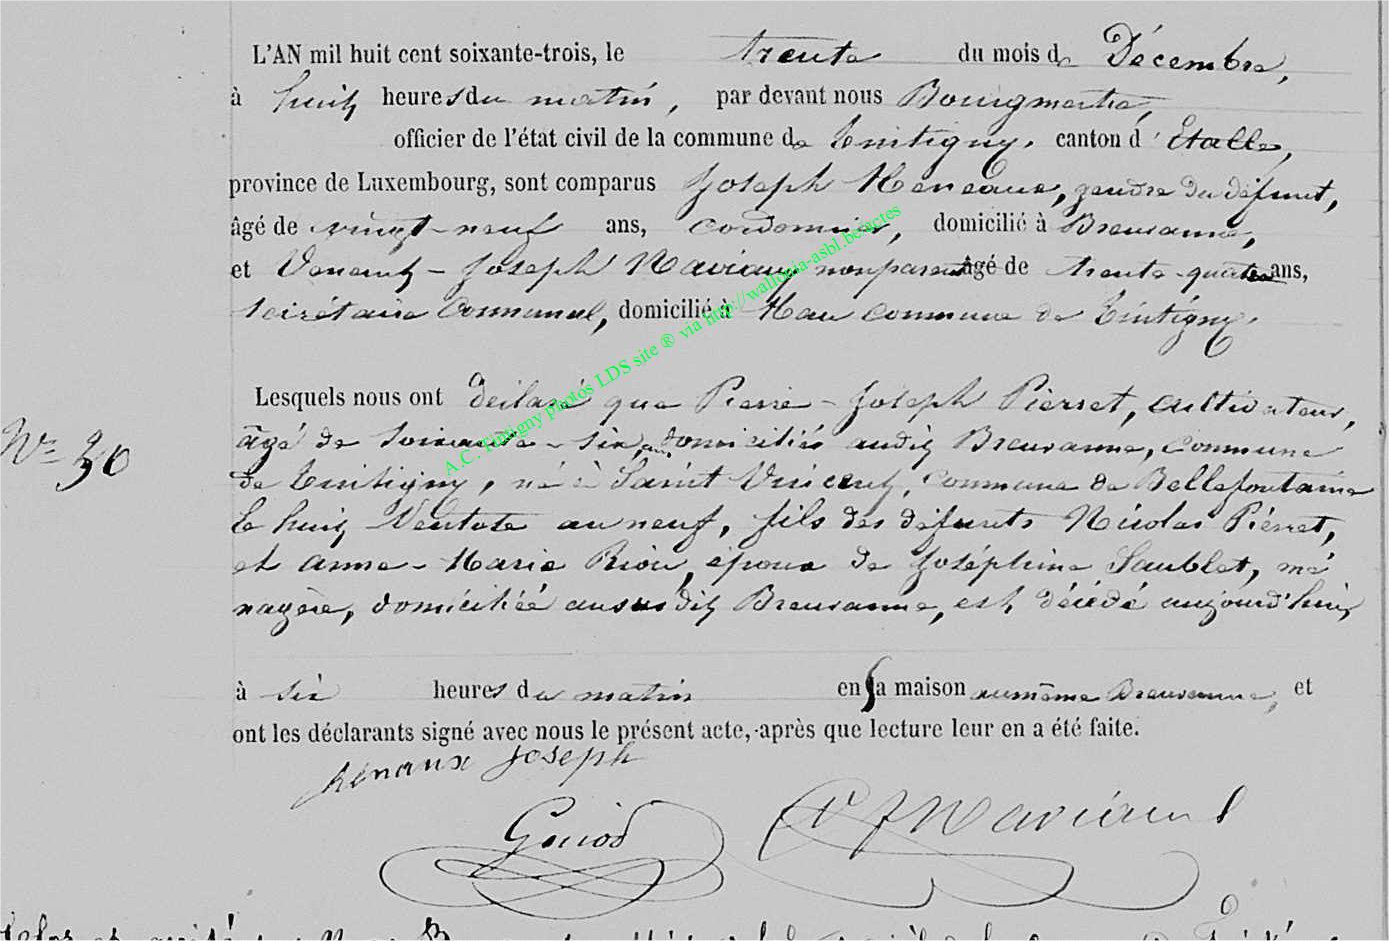 L'AN mil huit cent soixante-trois, le trente du mois de Décembre,
à huit heures du matin, par devant nous Bourgmestre,
officier de l'état civil de la commune de Tintigny, canton d'Etalle,
province de Luxembourg, sont comparus Joseph Heneaux, gendre du défunt,
âgé de vingt-neuf ans, cordonnier, domicilié à Breuvanne,
et Venant-Joseph Naviaux non parent âgé de trente-quatre ans,
secrétaire communal, domicilié à Han commune de Tintigny.
Lesquels nous ont déclaré que Pierre-Joseph Pierret, cultivateur,
N° 30
âgé de soixante-six ans, domicilié audit Breuvanne, commune
de Tintigny, né à Saint Vincent, commune de Bellefontaine
le huit Ventose an neuf, fils des défunts Nicolas Pierret,
et Anne-Marie époux de Joséphine Saublet, mé
nagère, domiciliée au susdit Breuvanne, est décédé aujourd'hui
à six heures du matin en sa maison au même Breuvanne, et
ont les déclarants signé avec nous le présent acte, après que lecture leur en a été faite.
henaux Joseph
Guiod
VJ Naviaux
A.C. Tintigny photos LDS site ® via http://wallonia-asbl.be/actes